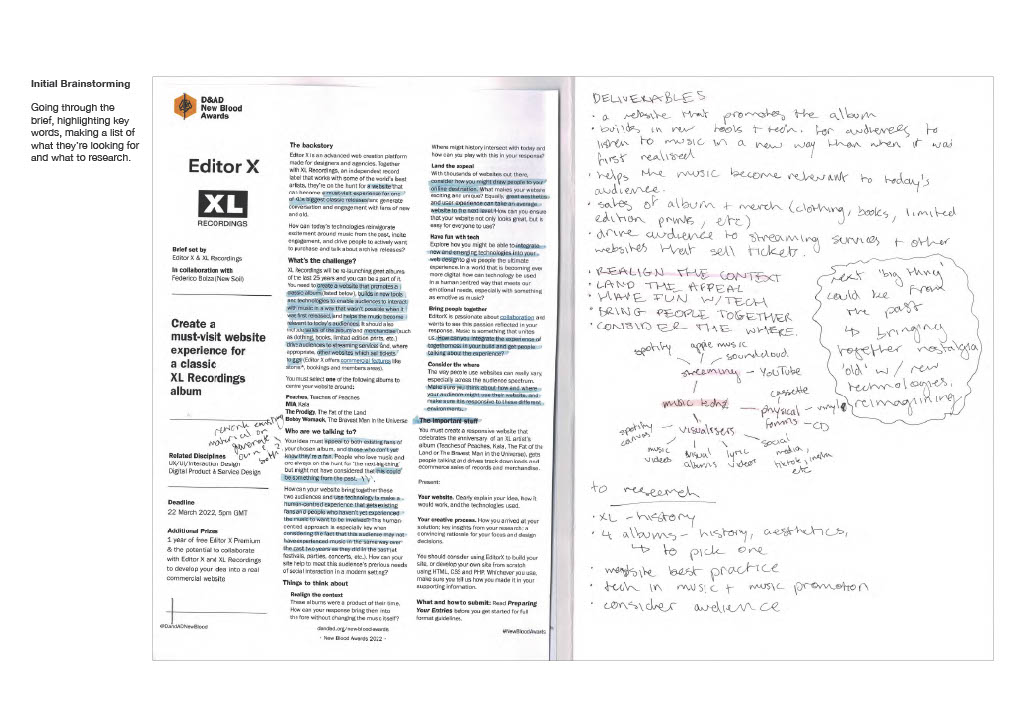 Initial Brainstorming
Going through the
brief, highlighting key
words, making a list of
what they're looking for
and what to research.
D&AD
New Blood
Awards
Editor X
XL
RECORDINGS
Brief set by
Editor X & XL Recordings
In collaboration with
Federico Bolza (New Soil)
Create a
must-visit website
experience for
a classic
XL Recordings
album
Related Disciplines
UX/UI/Interaction Design
Digital Product & Service Design
Deadline
22 March 2022, 5pm GMT
Additional Prize
1 year of free Editor X Premium
& the potential to collaborate
with Editor X and XL Recordings
to develop your idea into a real
commercial website
@DandADNewBlood
The backstory
Editor X is an advanced web creation platform
made for designers and agencies. Together
with XL Recordings, an independent record
label that works with some of the world's best
artists, they're on the hunt for a website that
can become a must-visit experience for one
of XL's biggest classic releases and generate
conversation and engagement with fans of new
and old.
How can today's technologies reinvigorate
excitement around music from the past, invite
engagement, and drive people to actively want
to purchase and talk about archive releases?
What's the challenge?
XL Recordings will be re-launching great albums
of the last 25 years and you can be a part of it.
You need to create a website that promotes a
classic album (listed below), builds in new tools
and technologies to enable audiences to interact
with music in a way that wasn't possible when it
was first released, and helps the music become
relevant to today's audiences. It should also
include sales of the album and merchandise (such
as clothing, books, limited edition prints, etc.)
drive audiences to streaming services and, where
appropriate, other websites which sell tickets
to gigs (Editor X offers commercial features like
stores*, bookings and members areas).
You must select one of the following albums to
centre your website around:
Peaches, Teaches of Peaches
MIA, Kala
The Prodigy, The Fat of the Land
Bobby Womack, The Bravest Man in the Universe
Who are we talking to?
Your ideas must appeal to both existing fans of
your chosen album, and those who don't yet
know they're a fan. People who love music and
are always on the hunt for 'the next big thing'
but might not have considered that this could
be something from the past.
How can your website bring together these
two audiences and use technology to make a
human-centred experience that gets existing
fans and people who haven't yet experienced
the music to want to be involved? The human
centred approach is especially key when
considering the fact that this audience may not
have experienced music in the same way over
the past two years as they did in the past (at
festivals, parties, concerts, etc.). How can your
site help to meet this audience's previous needs
of social interaction in a modern setting?
Things to think about
Realign the context
These albums were a product of their time.
How can your response bring them into
the fore without changing the music itself?
dandad.org/new-blood-awards
- New Blood Awards 2022 -
Where might history intersect with today and
how can you play with this in your response?
Land the appeal
With thousands of websites out there,
consider how you might draw people to your
online destination. What makes your website
exciting and unique? Equally, great aesthetics
and user experience can take an average
website to the next level. How can you ensure
that your website not only looks great, but is
easy for everyone to use?
Have fun with tech
Explore how you might be able to integrate
new and emerging technologies into your
web design to give people the ultimate
experience. In a world that is becoming ever
more digital how can technology be used
in a human centred way that meets our
emotional needs, especially with something
as emotive as music?
Bring people together
EditorX is passionate about collaboration and
wants to see this passion reflected in your
response. Music is something that unites
us. How can you integrate the experience of
togetherness in your build and get people
talking about the experience?
Consider the where
The way people use websites can really vary,
especially across the audience spectrum.
Make sure you think about how and where
your audience might use their website, and
make sure it is responsive to these different
environments.
The important stuff
You must create a responsive website that
celebrates the anniversary of an XL artist's
album (Teaches of Peaches, Kala, The Fat of the
Land or The Bravest Man in the Universe), gets
people talking and drives track downloads and
ecommerce sales of records and merchandise.
Present:
Your website. Clearly explain your idea, how it
would work, and the technologies used.
Your creative process. How you arrived at your
solution; key insights from your research; a
convincing rationale for your focus and design
decisions.
You should consider using EditorX to build your
site, or develop your own site from scratch
using HTML, CSS and PHP. Whichever you use,
make sure you tell us how you made it in your
supporting information.
What and how to submit: Read Preparing
Your Entries before you get started for full
format guidelines.
#NewBloodAwards
DELIVERABLES
· a website that promotes the album
· builds in new tools + tech. for audiences to
listen to music in a new way than when it was
first realised
· helps the music become relevant to today's
audience.
· sales of album + merch (clothing, books, limited
edition prints, etc)
· drive audience to streaming services + other
websites that sell tickets.
· REALIGN THE CONTEXT
· LAND THE APPEAL
· HAVE FUN W/TECH
· BRING PEOPLE TOGETHER
· CONSIDER THE WHERE.
next 'big thing'
could be from
the past
↳ bringing
together nostalgia
'old' w/ new
technologies.
reimagining
spotify
apple music
soundcloud
streaming - YouTube
music tech
cassette
physical - vinyl
formats - CD
visualisers
spotify
canvas
music
videos
visual
albums
lyric
videos
social
media,
tiktok, insta
etc
to research
· XL - history
· 4 albums - history, aesthetics,
↳ to pick one
· website best practice
· tech in music + music promotion
· consider audience